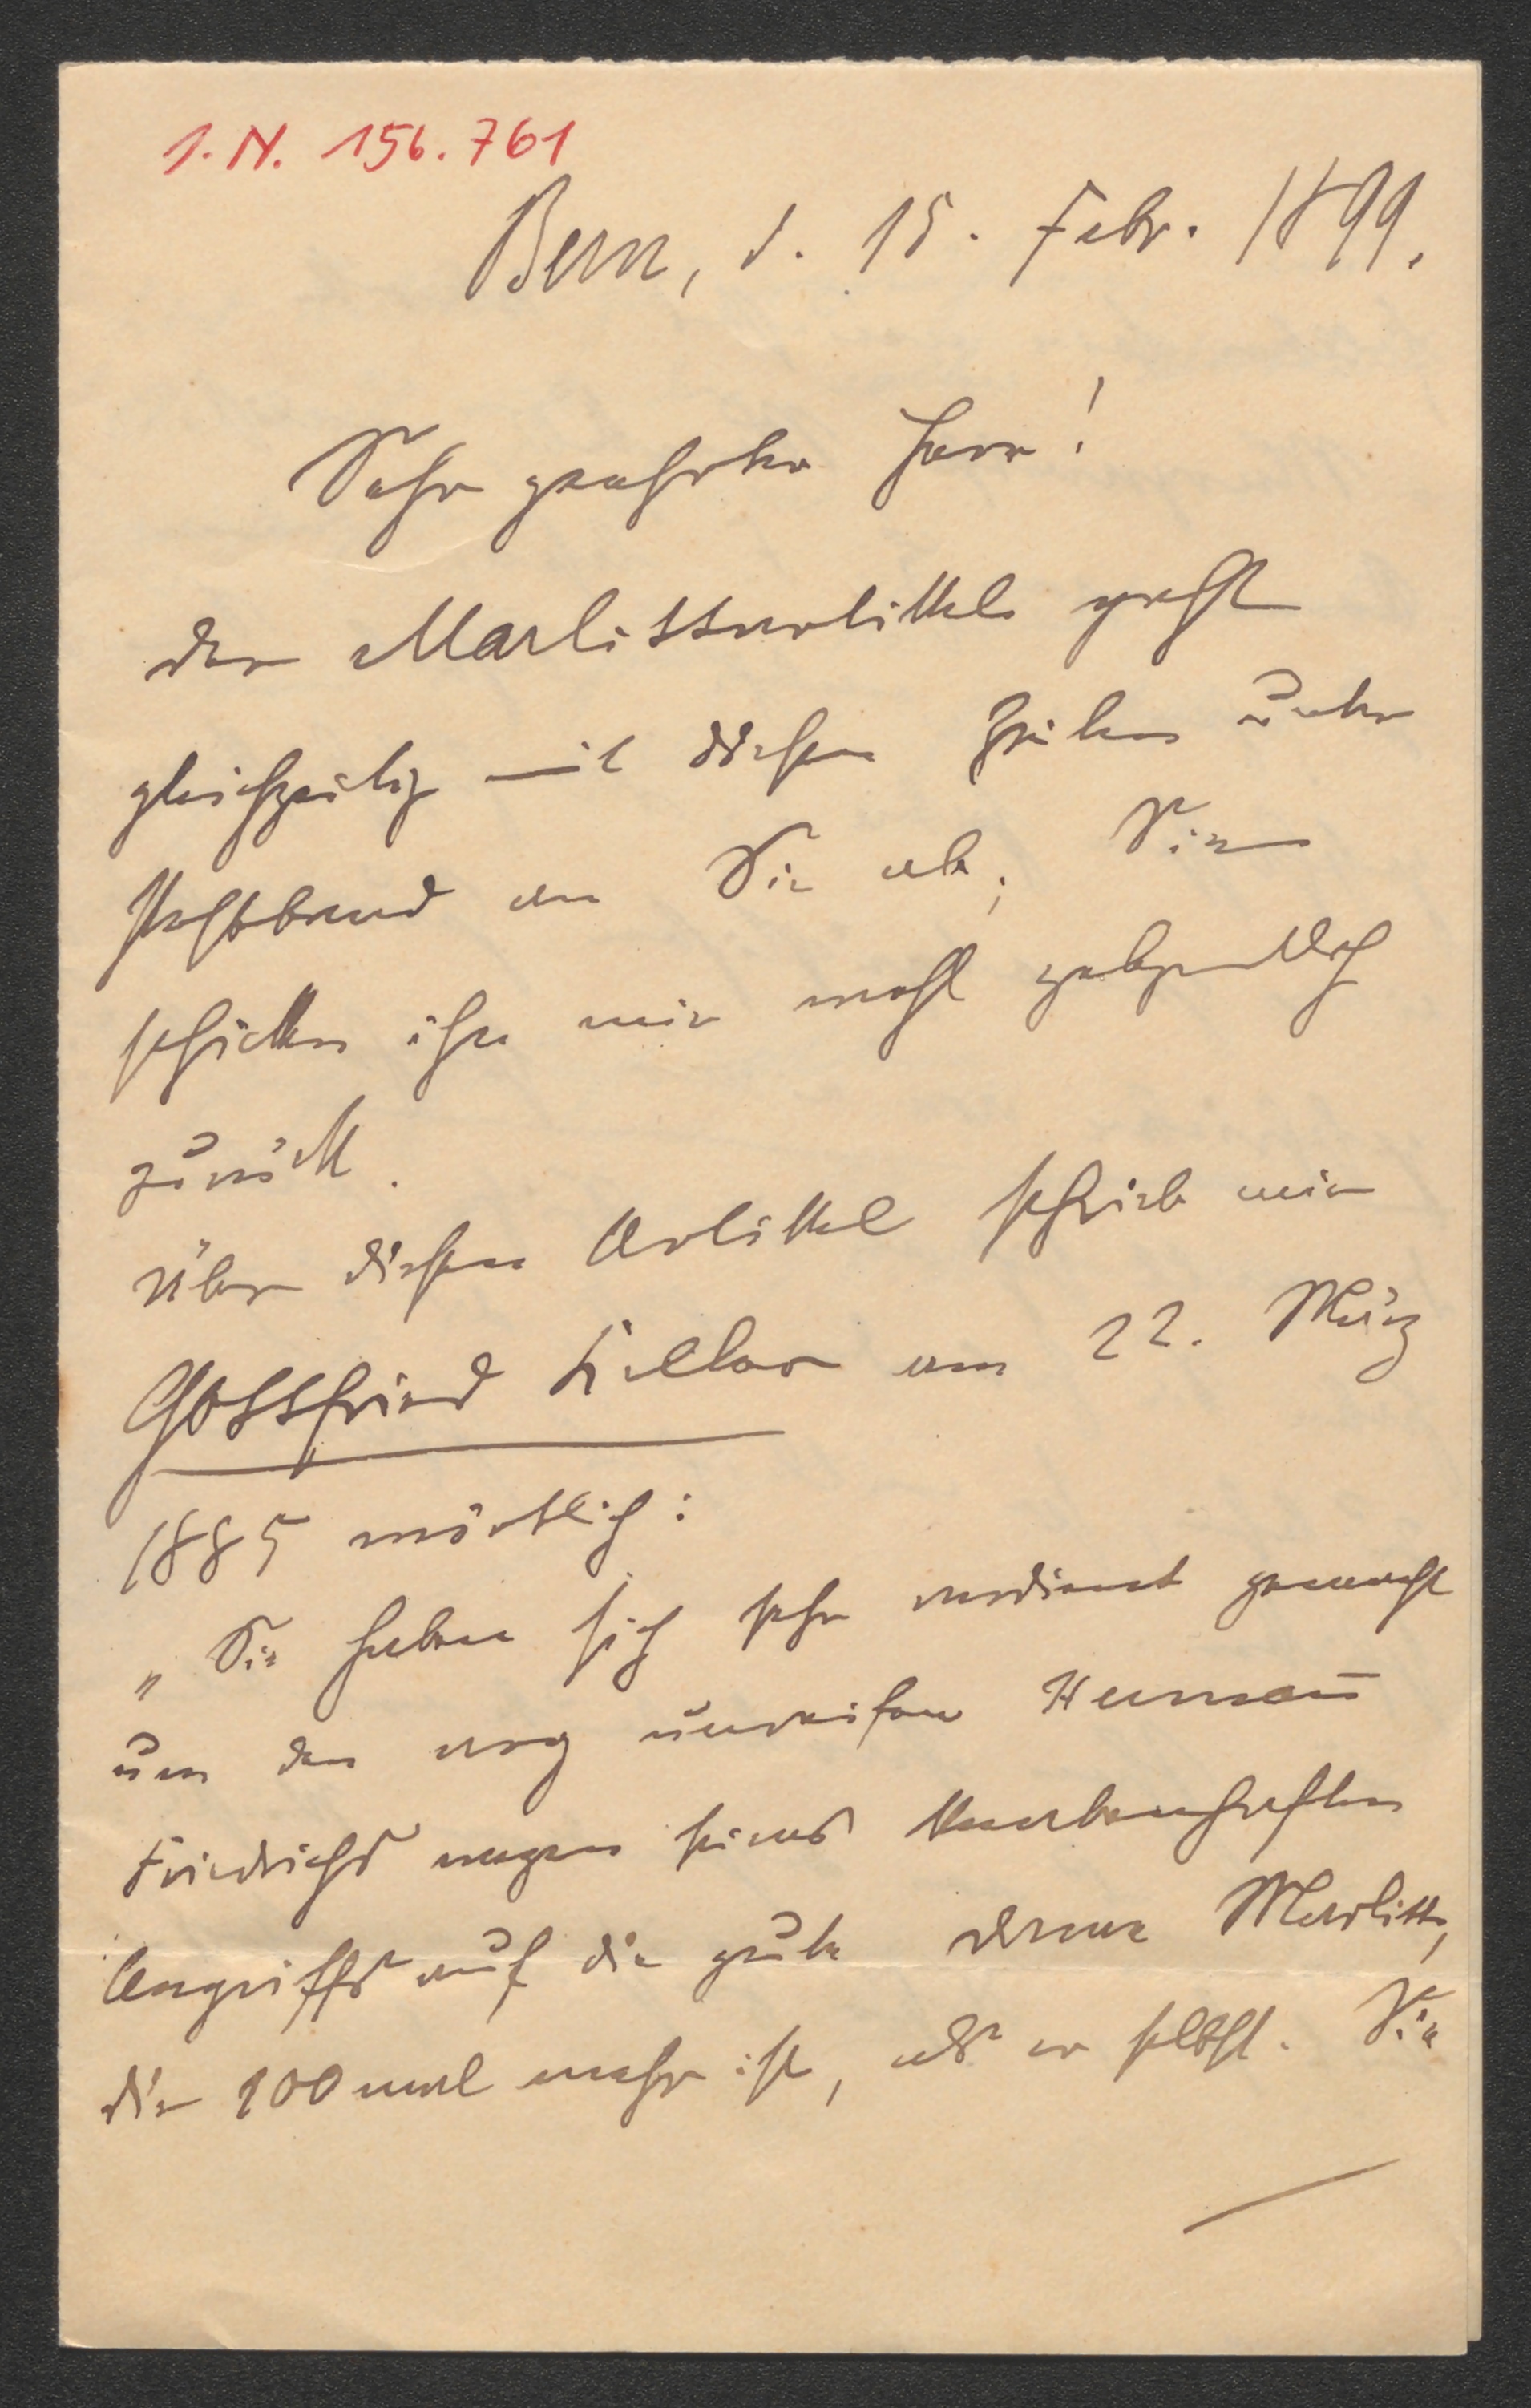 I.N. 156.761
Bern, d. 15. Febr. 1899.
Sehr geehrter Herr!
Der Marlittartikel geht
gleichzeitig mit diesen Zeilen unter
Kreuzband an Sie ab; Sie
schicken ihn mir wohl gelegentlich
zurück.
Über diesen Artikel schrieb mir
Gottfried Keller am 22. März
1885 wörtlich:
„Sie haben sich sehr verdient gemacht
um den arg unreifen Herman̄
Friedrichs wegen seines knabenhaften
Angriffs auf die gute arme Marlitt,
die 100 mal mehr ist, als er selbst. Sie